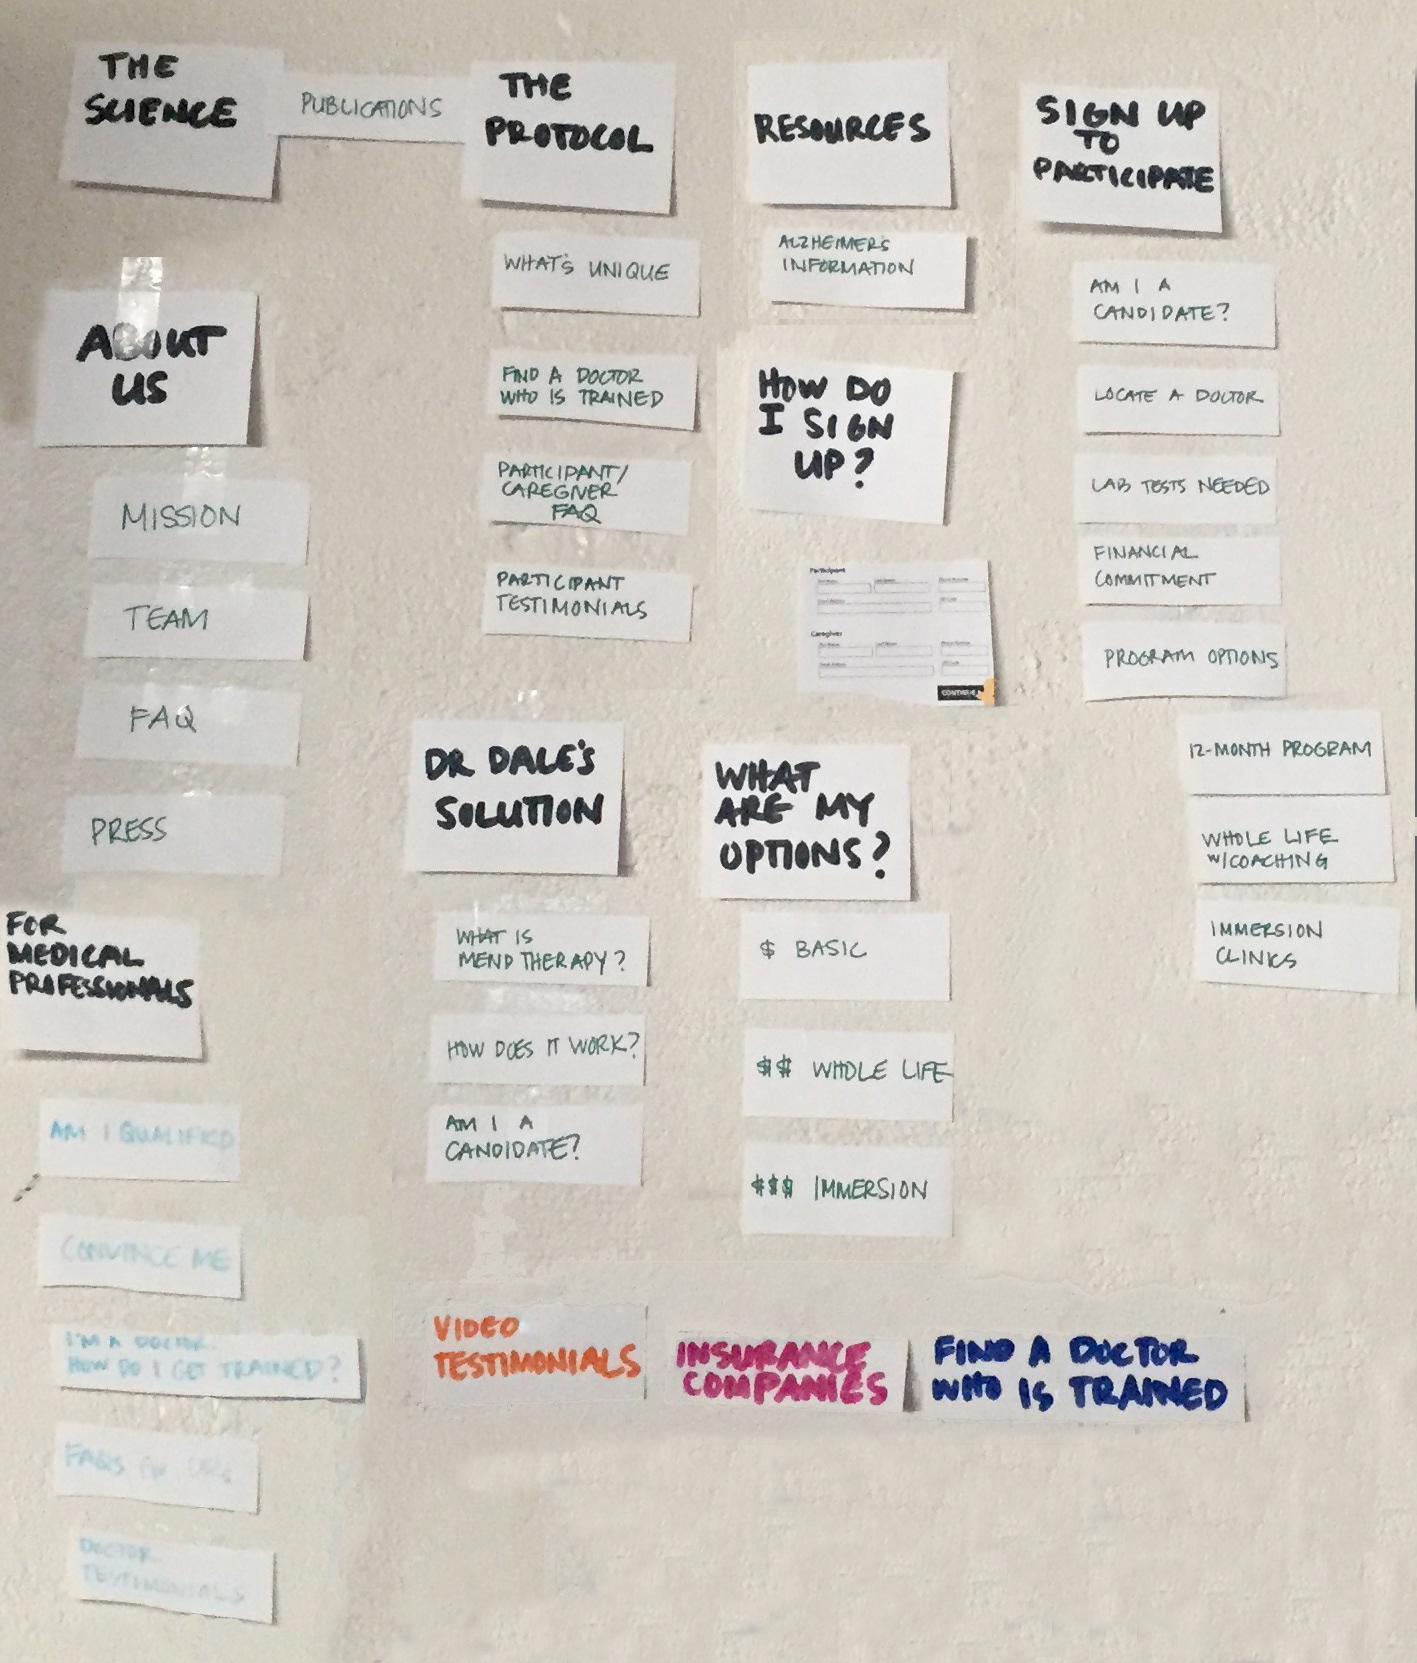 THE
SCIENCE
PUBLICATIONS
THE
PROTOCOL
WHAT'S UNIQUE
FIND A DOCTOR
WHO IS TRAINED
PARTICIPANT/
CAREGIVER
FAQ
PARTICIPANT
TESTIMONIALS
RESOURCES
ALZHEIMER'S
INFORMATION
HOW DO
I SIGN
UP?
Participant
Caregiver
CONTINUE
SIGN UP
TO
PARTICIPATE
AM I A
CANDIDATE?
LOCATE A DOCTOR
LAB TESTS NEEDED
FINANCIAL
COMMITMENT
PROGRAM OPTIONS
12-MONTH PROGRAM
WHOLE LIFE
W/COACHING
IMMERSION
CLINICS
ABOUT
US
MISSION
TEAM
FAQ
PRESS
DR DALE'S
SOLUTION
WHAT IS
MEND THERAPY?
HOW DOES IT WORK?
AM I A
CANDIDATE?
WHAT
ARE MY
OPTIONS?
$ BASIC
$$ WHOLE LIFE
$$$ IMMERSION
FOR
MEDICAL
PROFESSIONALS
AM I QUALIFIED
CONVINCE ME
I'M A DOCTOR.
HOW DO I GET TRAINED?
FAQS
DOCTOR
TESTIMONIALS
VIDEO
TESTIMONIALS
INSURANCE
COMPANIES
FIND A DOCTOR
WHO IS TRAINED